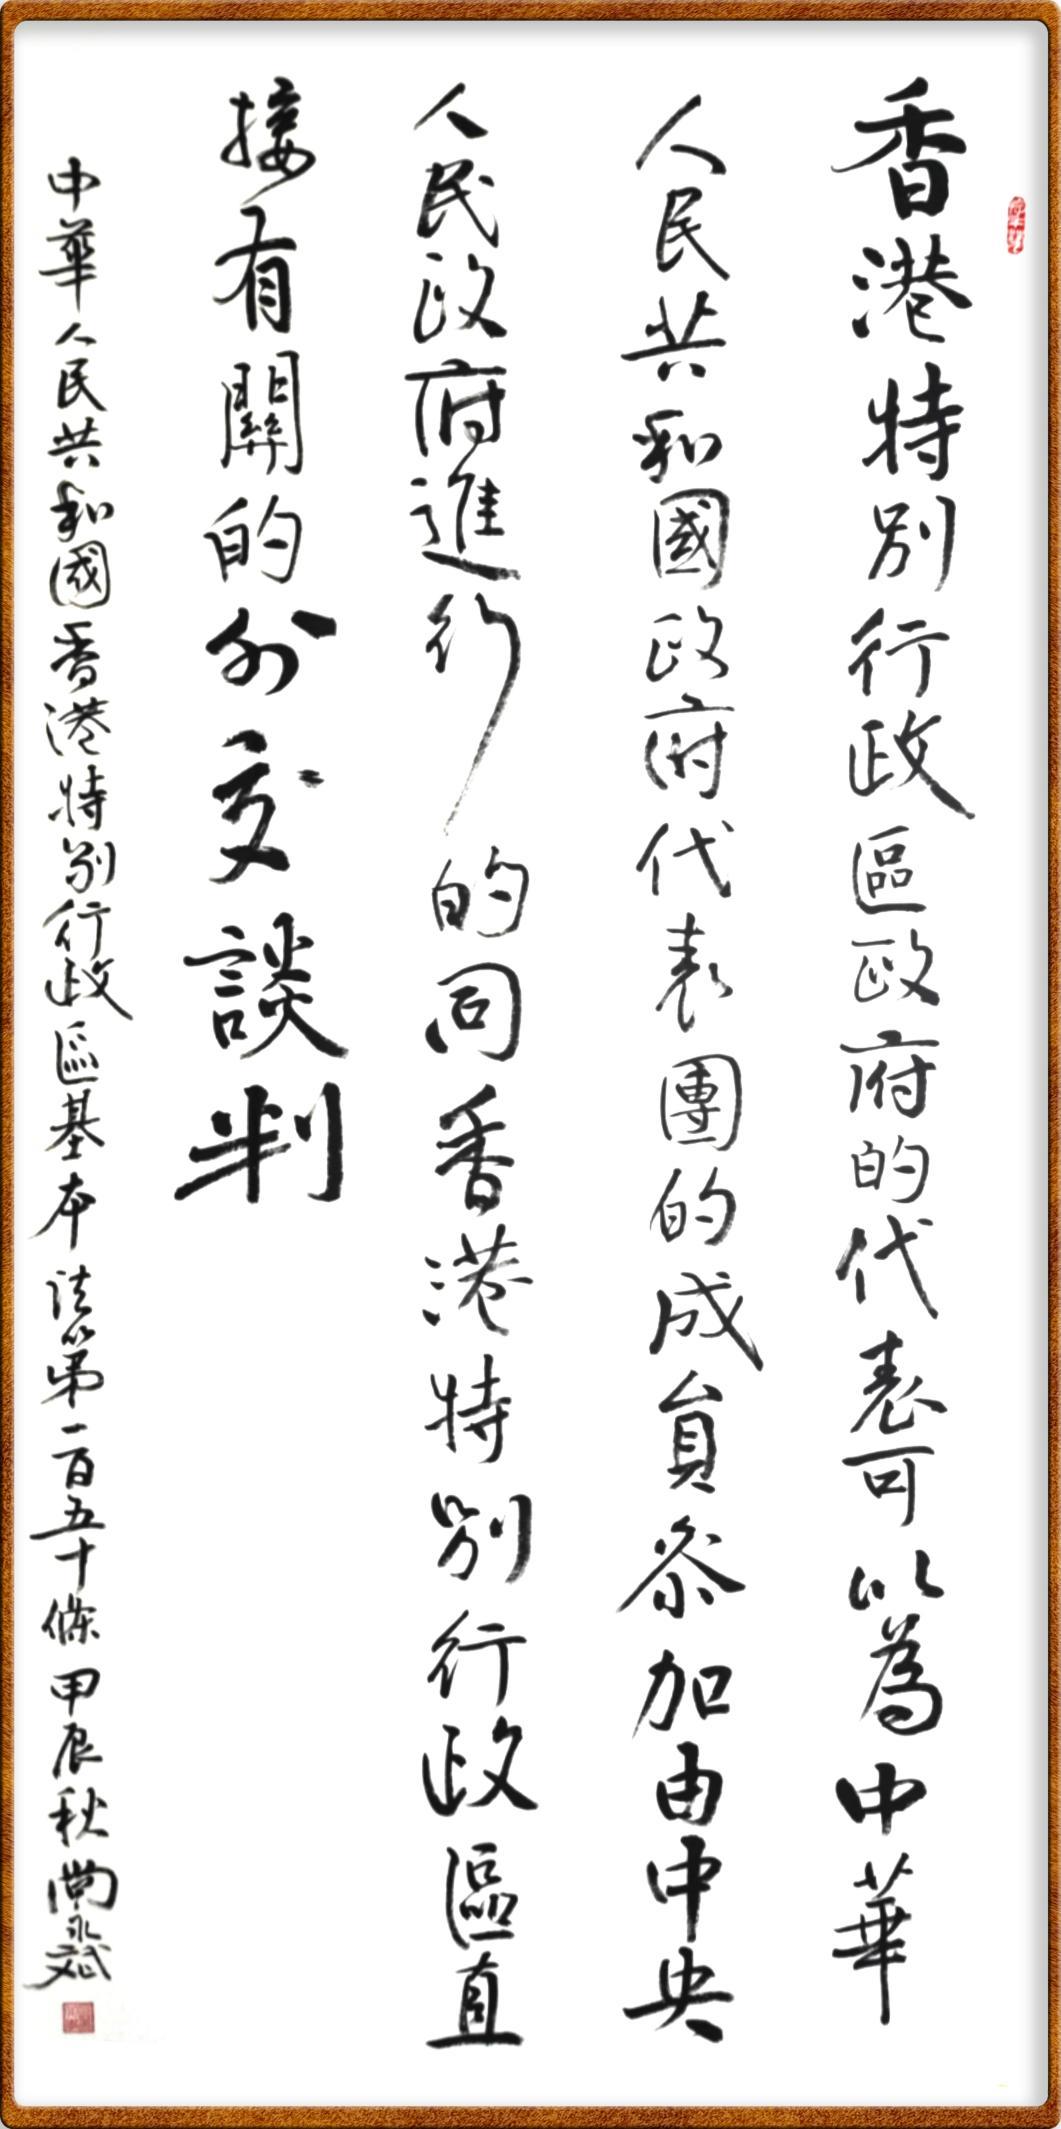 香港特別行政區政府的代表可以為中華
人民共和國政府代表團的成員参加由中央
人民政府進行的同香港特別行政區直
接有關的外交談判
中華人民共和國香港特別行政區基本法第一百五十條 甲辰秋 尚永斌